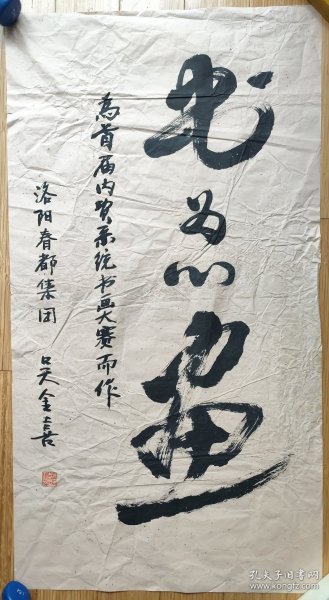 书为心畫
為首届内贸系统书画大赛而作
洛阳春都集团 吴金喜
孔夫子旧书网
www.kongfz.com